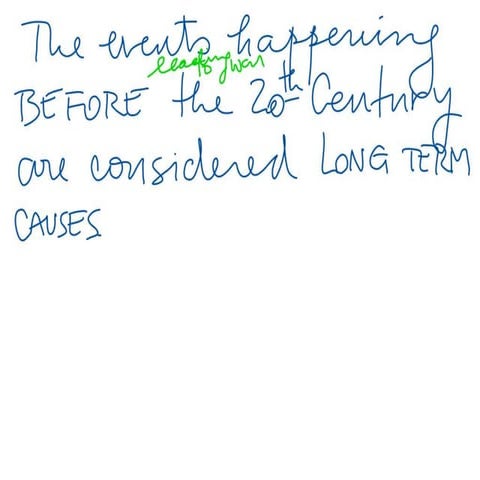 The events happening
leading war
BEFORE the 20th Century
are considered LONG TERM
CAUSES